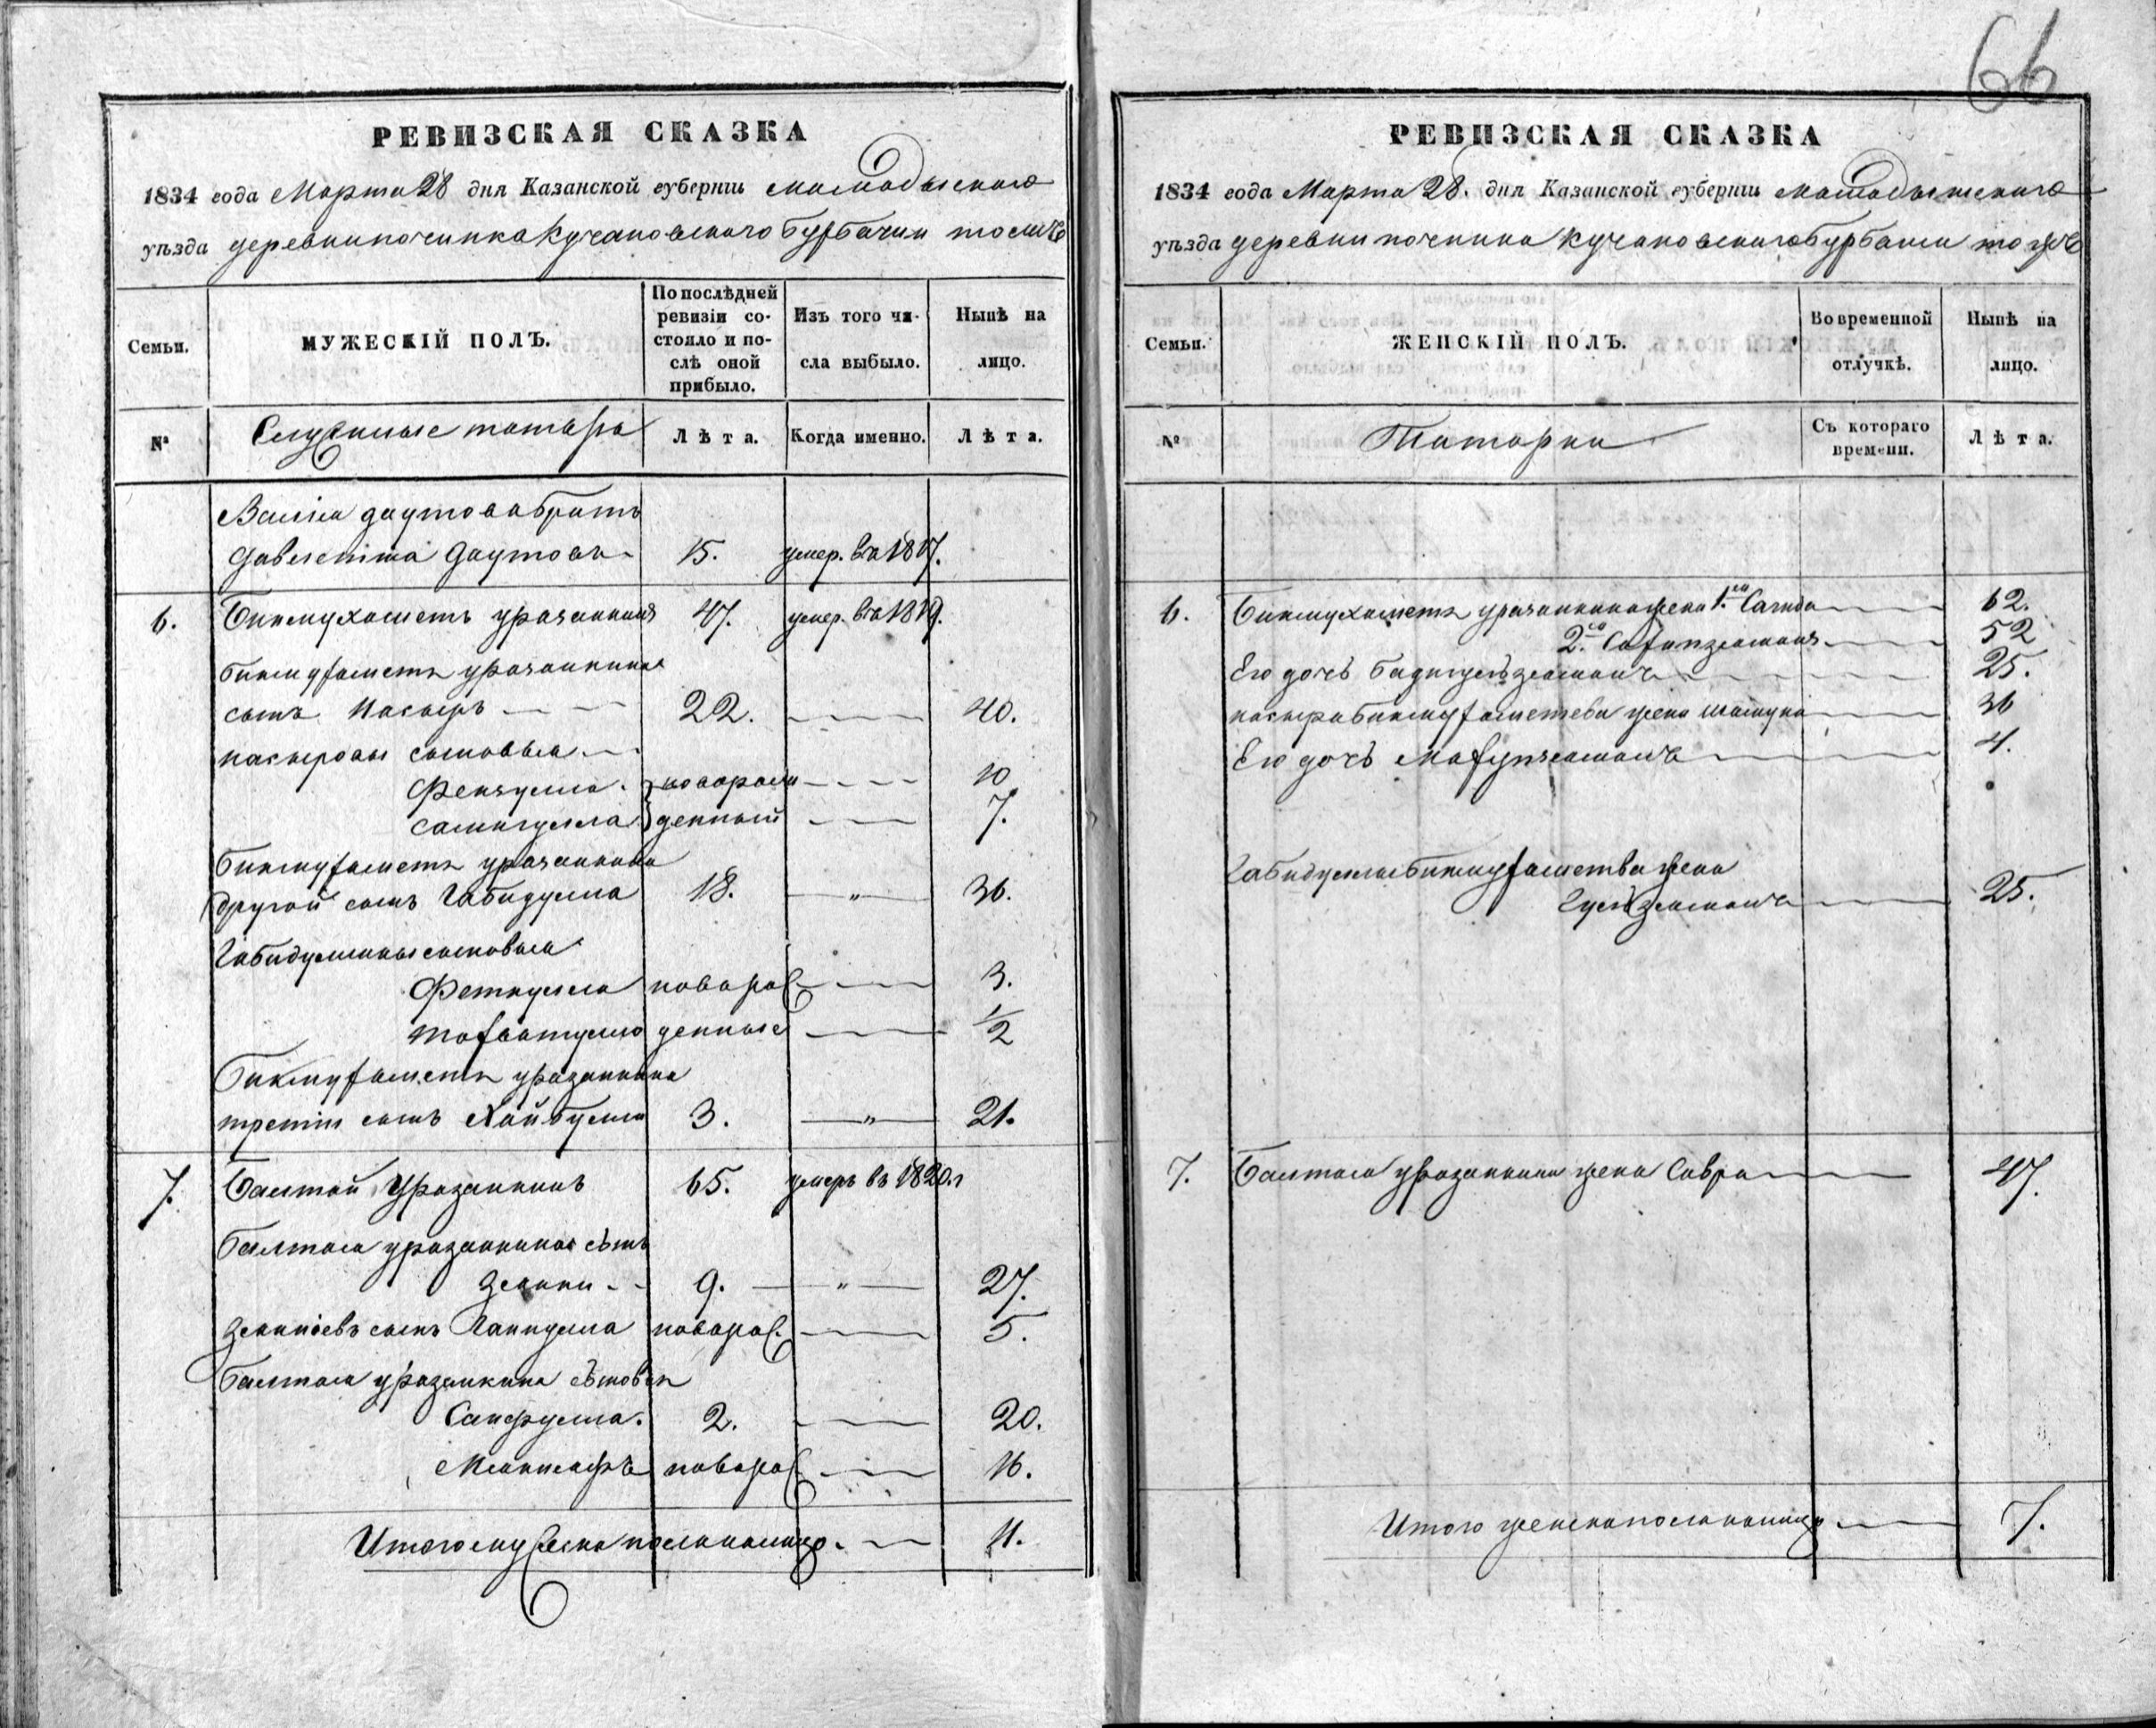 66
РЕВИЗСКАЯ СКАЗКА
1834 года Марта 28 дня Казанской губерніи мамадышскаго
уѣзда деревни починка Кучановского Бурбаши тоже
Семьи.
МУЖЕСКІЙ ПОЛЪ.
По послѣдней ревизіи со-
стояло и по-
слѣ оной
прибыло.
Изъ того чи-
сла выбыло.
Нынѣ на
лицо.
№
Служилые татары
Лѣта.
Когда именно.
Лѣта.
даутова братъ
Даутовъ 15. умер. въ 1817.
6. Бикмухаметъ уразаикинъ 47. умер. въ 1819.
бикмухаметъ уразаикина
сынъ Насыръ 22. 40.
насыровы сыновья
новорож 10
денный 7.
Бикмухаметъ уразаикина
другой сынъ Габидулла 18. " 36.
Габидуллины сыновья
Феткулла новорож 3.
денные 1/2
Бикмухаметъ уразаикина
третій сынъ Хайбулла 3. " 21.
7. Балтай Уразаикинъ 65. умеръ въ 1820.г
балтая уразаикина сынъ
9. " 27.
сынъ новорож. 5.
балтая уразаикина сыновья
2. 20.
новорож 16.
Итого мужеска пола налицо 11.
РЕВИЗСКАЯ СКАЗКА
1834 года Марта 28. дня Казанской губерніи мамадышскаго
уѣзда деревни починка Кучановскаго бурбаши тожъ
Семьи.
ЖЕНСКІЙ ПОЛЪ.
Во временной
отлучкѣ.
Нынѣ на
лицо.
№
Татарки
Съ котораго
времени.
Лѣта.
6. Бикмухаметъ уразаикина жена 1.ая 62.
2.ая 52
Его дочь 25.
насыра бикмухаметева жена 36
Его дочь 4.
Габидуллы бикмухаметева жена
25.
7. Балтая уразаикина жена Савра 47.
Итого женска пола налицо 7.